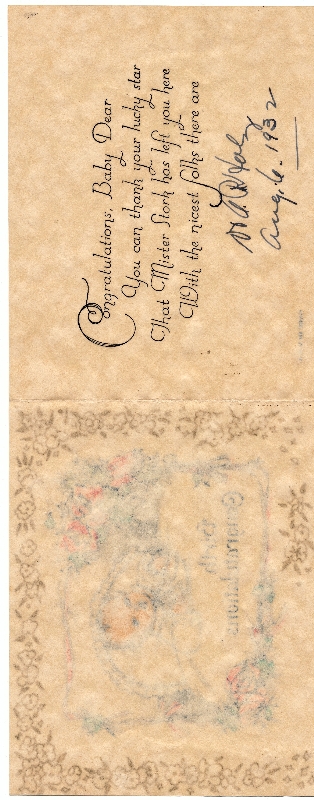 Congratulations, Baby Dear
You can thank your lucky star
That Mister Stork has left you here
With the nicest folks there are
Aug. 6. 1932
Congratulations
Baby